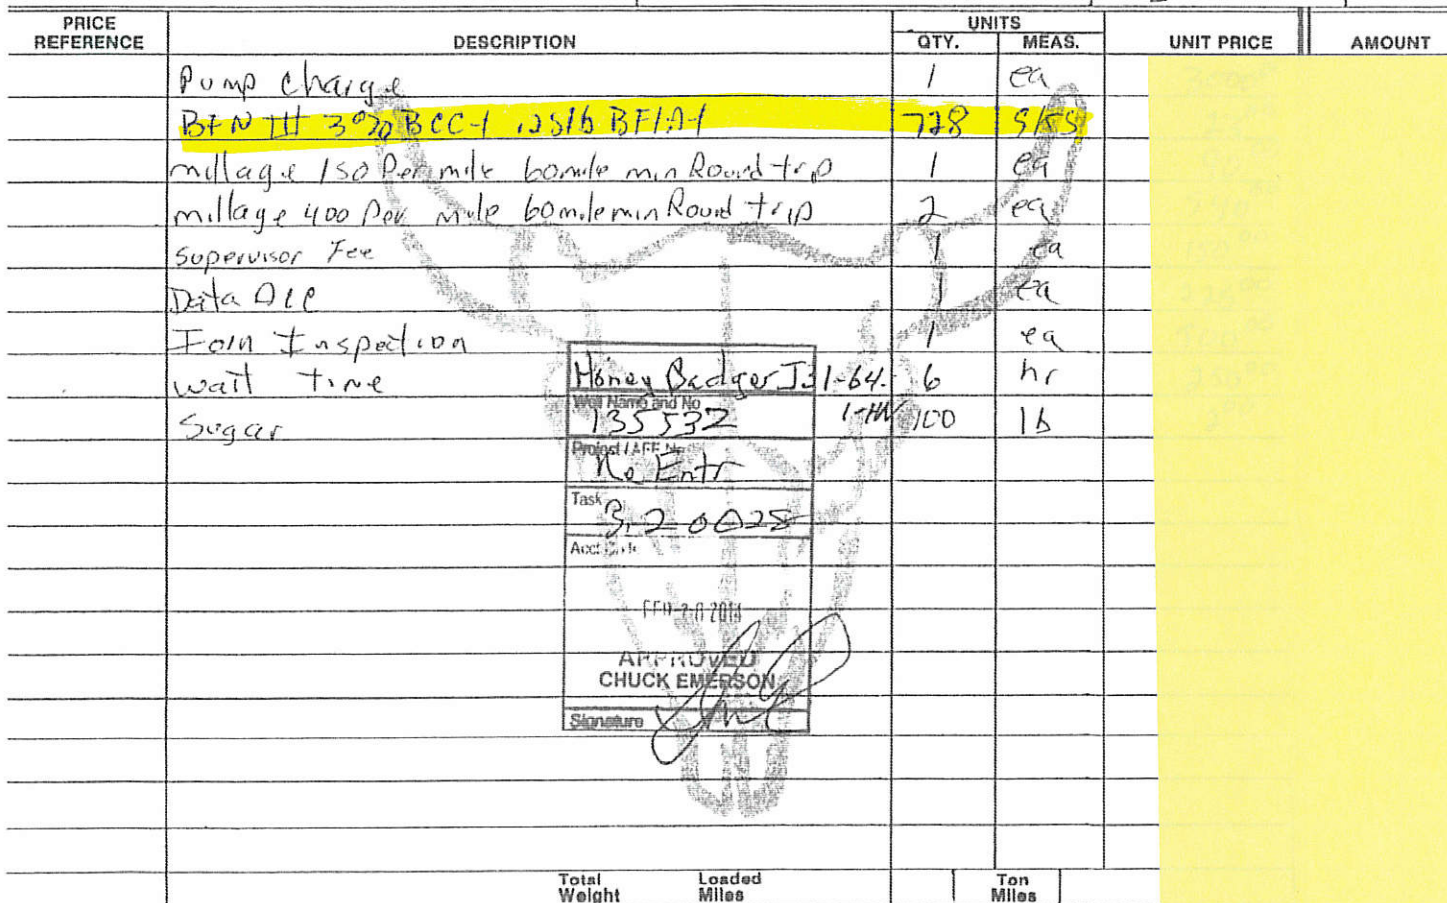 PRICE REFERENCE DESCRIPTION UNITS QTY. MEAS. UNIT PRICE AMOUNT
Pump Charge 1 ea
BFN III 3% BCC-1 .25lb BFLA-1 728
millage 150 Per mile 60 mile min Round trip 1 ea
millage 400 Per mile 60 mile min Round trip 2 ea
Supervisor Fee 1 ea
Data 1 ea
Inspection 1 ea
wait time 6 hr
Sugar 100 lb
Honey Badger J31-64-
1-HN
Well Name and No
135532
Project / AFE No
No Entr
Task
3.20028
Acct Code
FEB 20 2014
APPROVED
CHUCK EMERSON
Signature
Total Weight Loaded Miles Ton Miles